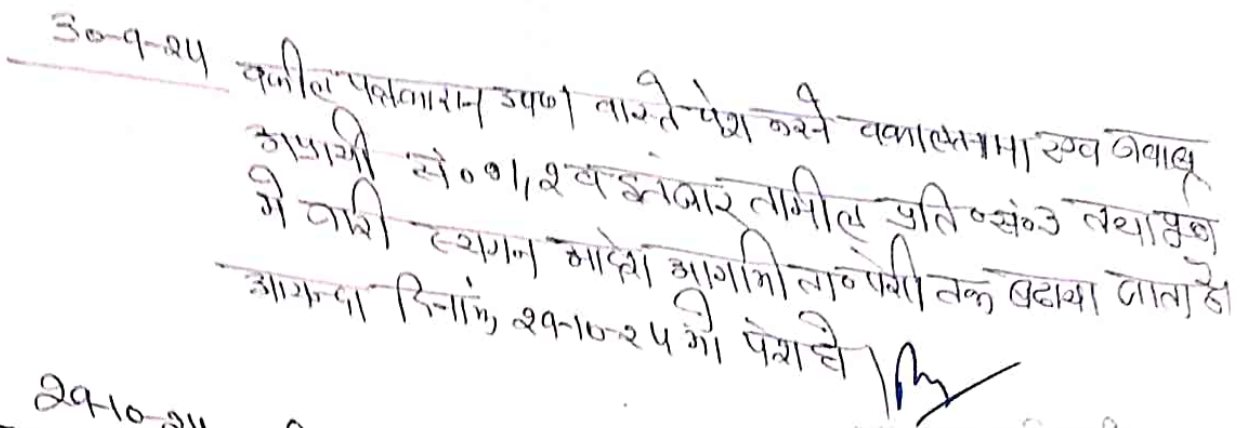 30-9-24 वकील पक्षकारान उप० वास्ते पेश करने वकालतनामा एवं जवाब
अप्रार्थी सं० 01, 2 व इंतजार तामील प्रति० सं० 3 तथा पूर्व
में जारी स्थगन आदेश आगामी ता० पेशी तक बढाया जाता है।
आयन्दा दिनांक 29-10-24 को पेश हो।
29-10-24